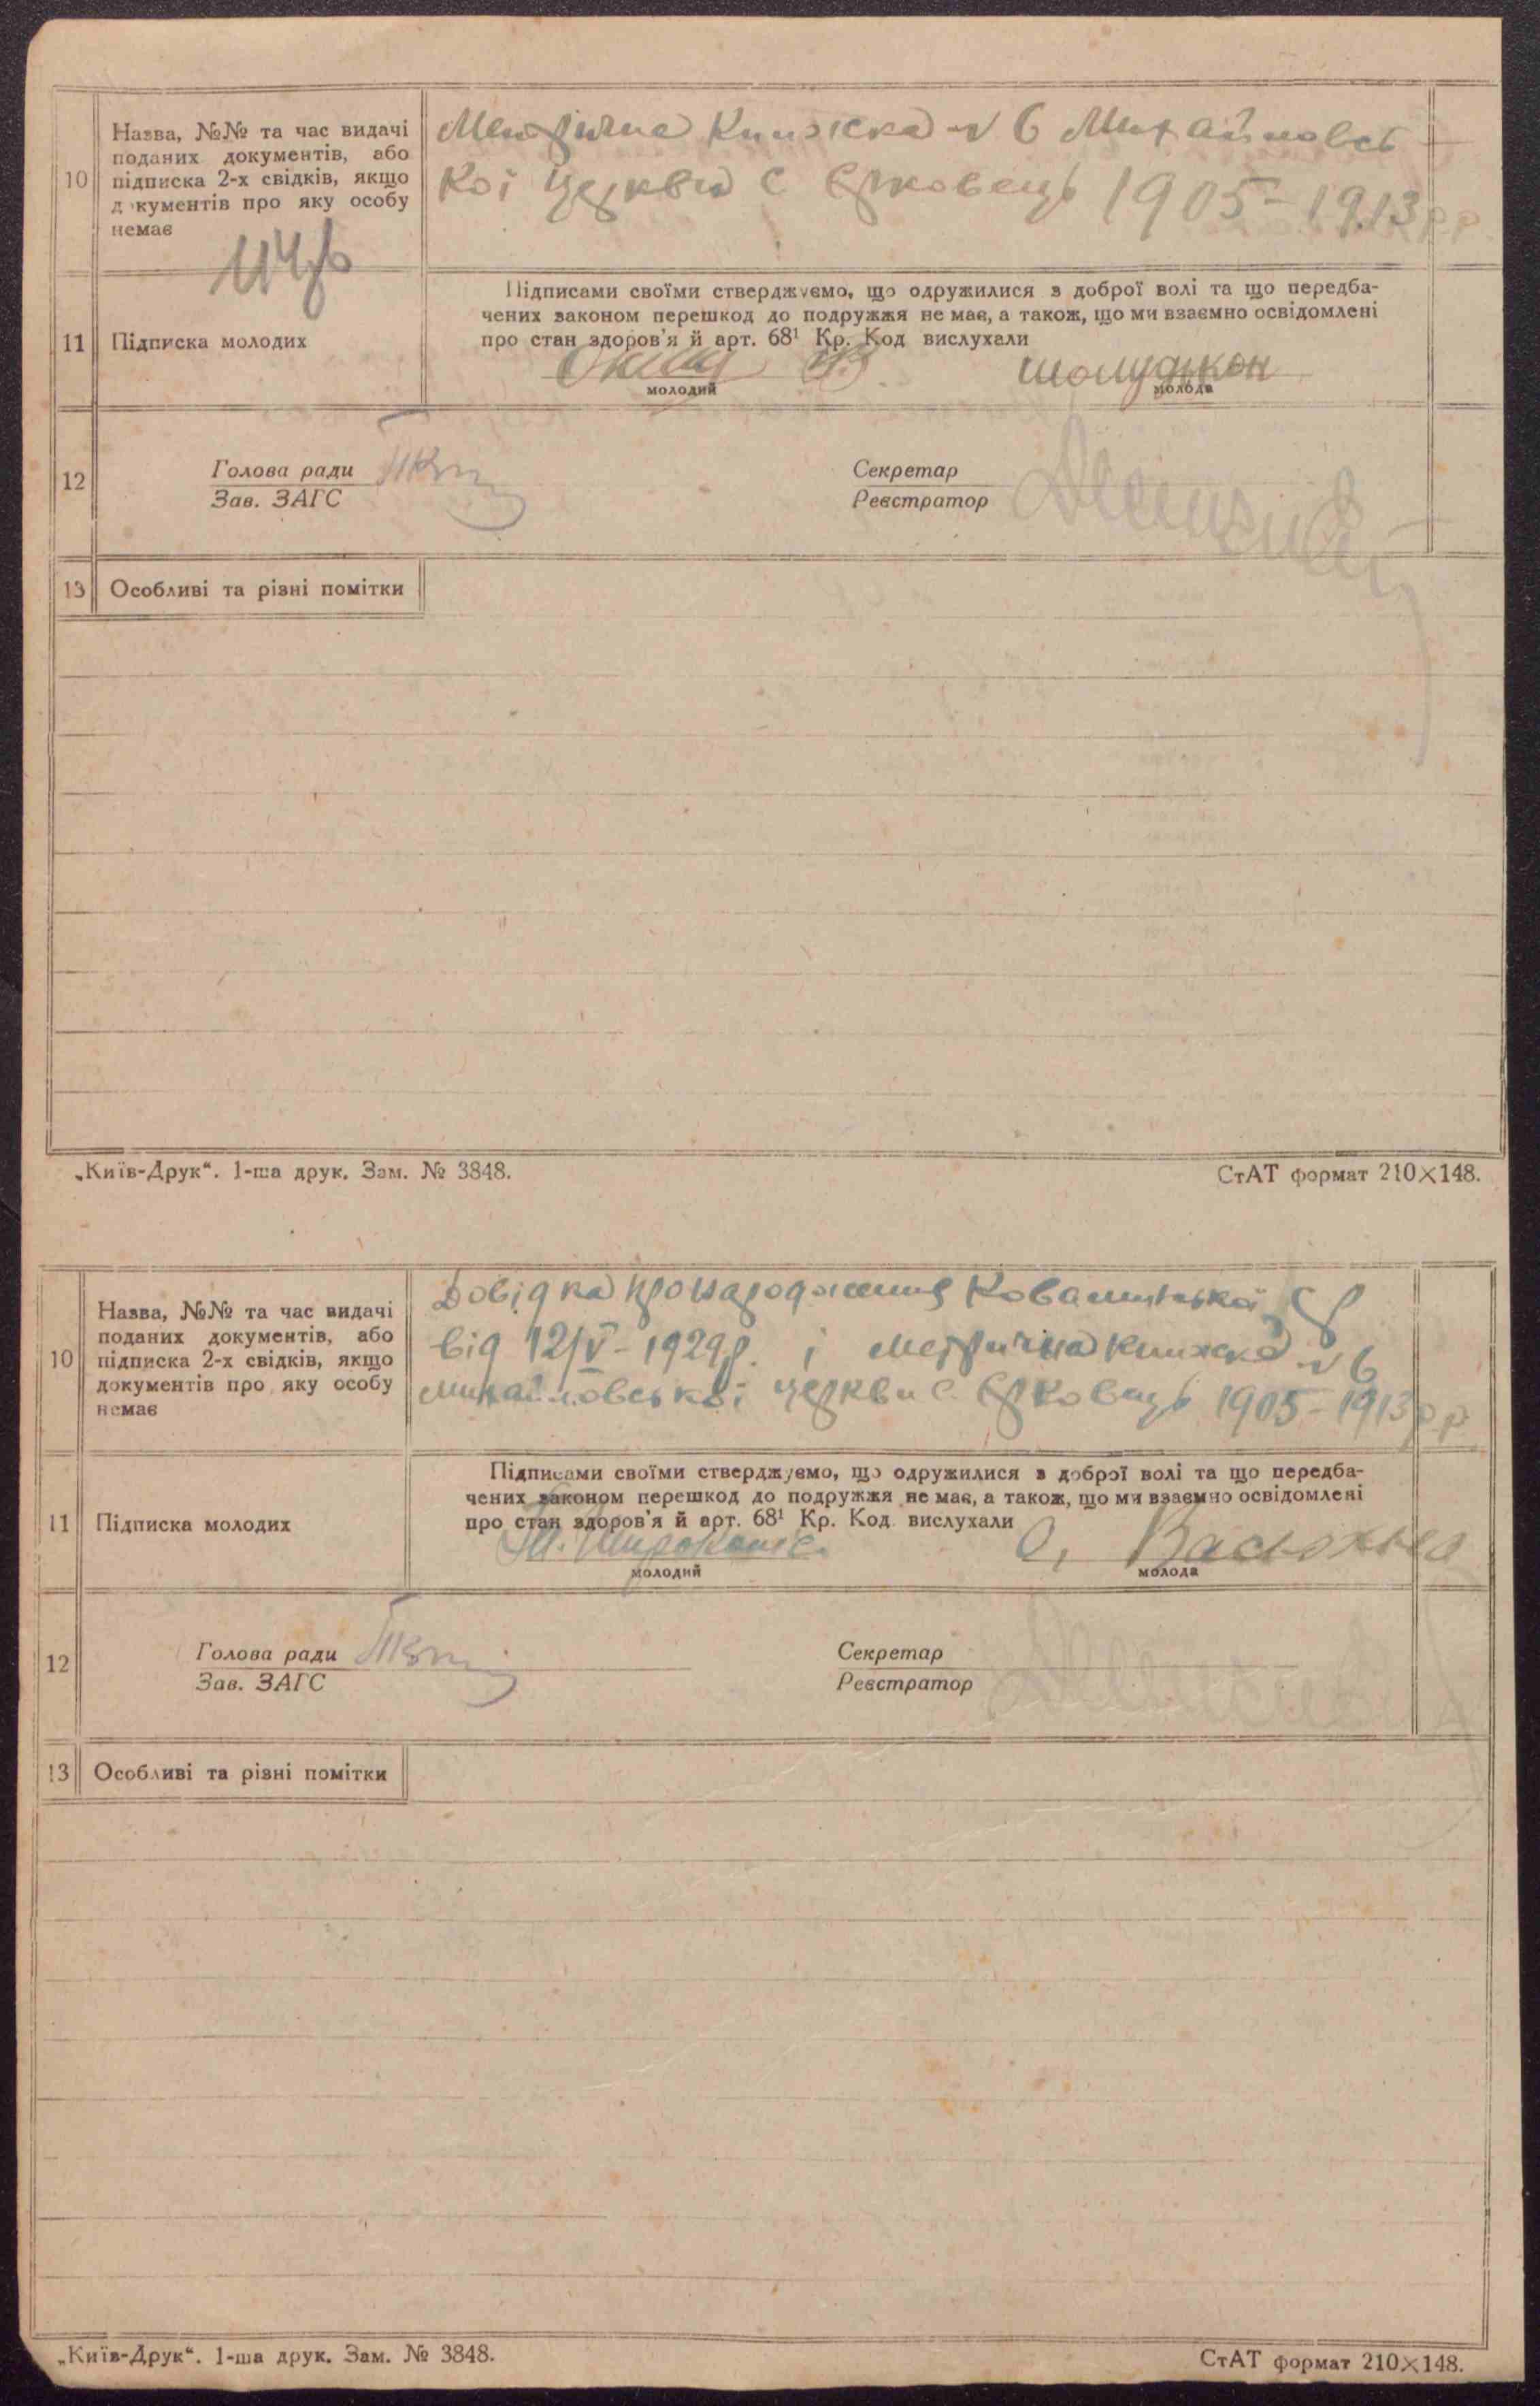 10
Назва, №№ та час видачі
поданих документів, або
підписка 2-х свідків, якщо
д кументів про яку особу
немає
Метрична Книжка № 6 Михайловсь
кої церкви с Єрковець 1905-1913 р.р.
11
Підписка молодих
Підписами своїми стверджуємо, що одружилися з доброї волі та що передба-
чених законом перешкод до подружжя не має, а також, що ми взаємно освідомлені
про стан здоров'я й арт. 68¹ Кр. Код вислухали
молодий
молода
12
Голова ради
Зав. ЗАГС
Секретар
Реєстратор
13
Особливі та різні помітки
„Київ-Друк“. 1-ша друк. Зам. № 3848.
СтАТ формат 210×148.
10
Назва, №№ та час видачі
поданих документів, або
підписка 2-х свідків, якщо
документів про яку особу
немає
Довідка про народження
від 12/V-1929р. і метрична книжка № 6
михайловської церкви с. Єрковець 1905-1913 р.р.
11
Підписка молодих
Підписами своїми стверджуємо, що одружилися з доброї волі та що передба-
чених законом перешкод до подружжя не має, а також, що ми взаємно освідомлені
про стан здоров'я й арт. 68¹ Кр. Код вислухали
молодий
молода
12
Голова ради
Зав. ЗАГС
Секретар
Реєстратор
13
Особливі та різні помітки
„Київ-Друк“. 1-ша друк. Зам. № 3848.
СтАТ формат 210×148.